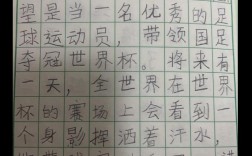 望是当一名优秀的足
球运动员，带领国足
夺冠世界杯。将来有
一天，全世界在世界
杯的赛场上会看到一
个身影挥洒着汗水，